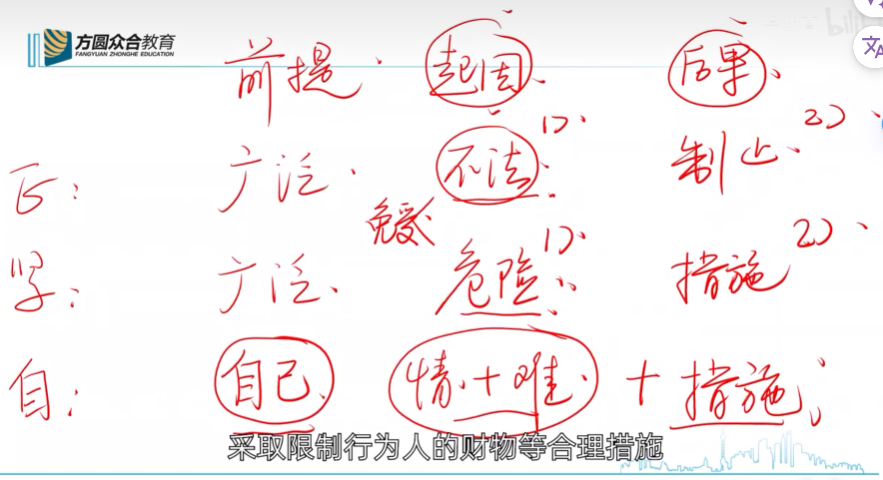 方圆众合教育
FANGYUAN ZHONGHE EDUCATION
bili
前提 起因 后果
正: 广泛 不法 1) 制止 2)
免受
紧: 广泛 危险 1) 措施 2)
自: 自己 情+难 + 措施
采取限制行为人的财物等合理措施